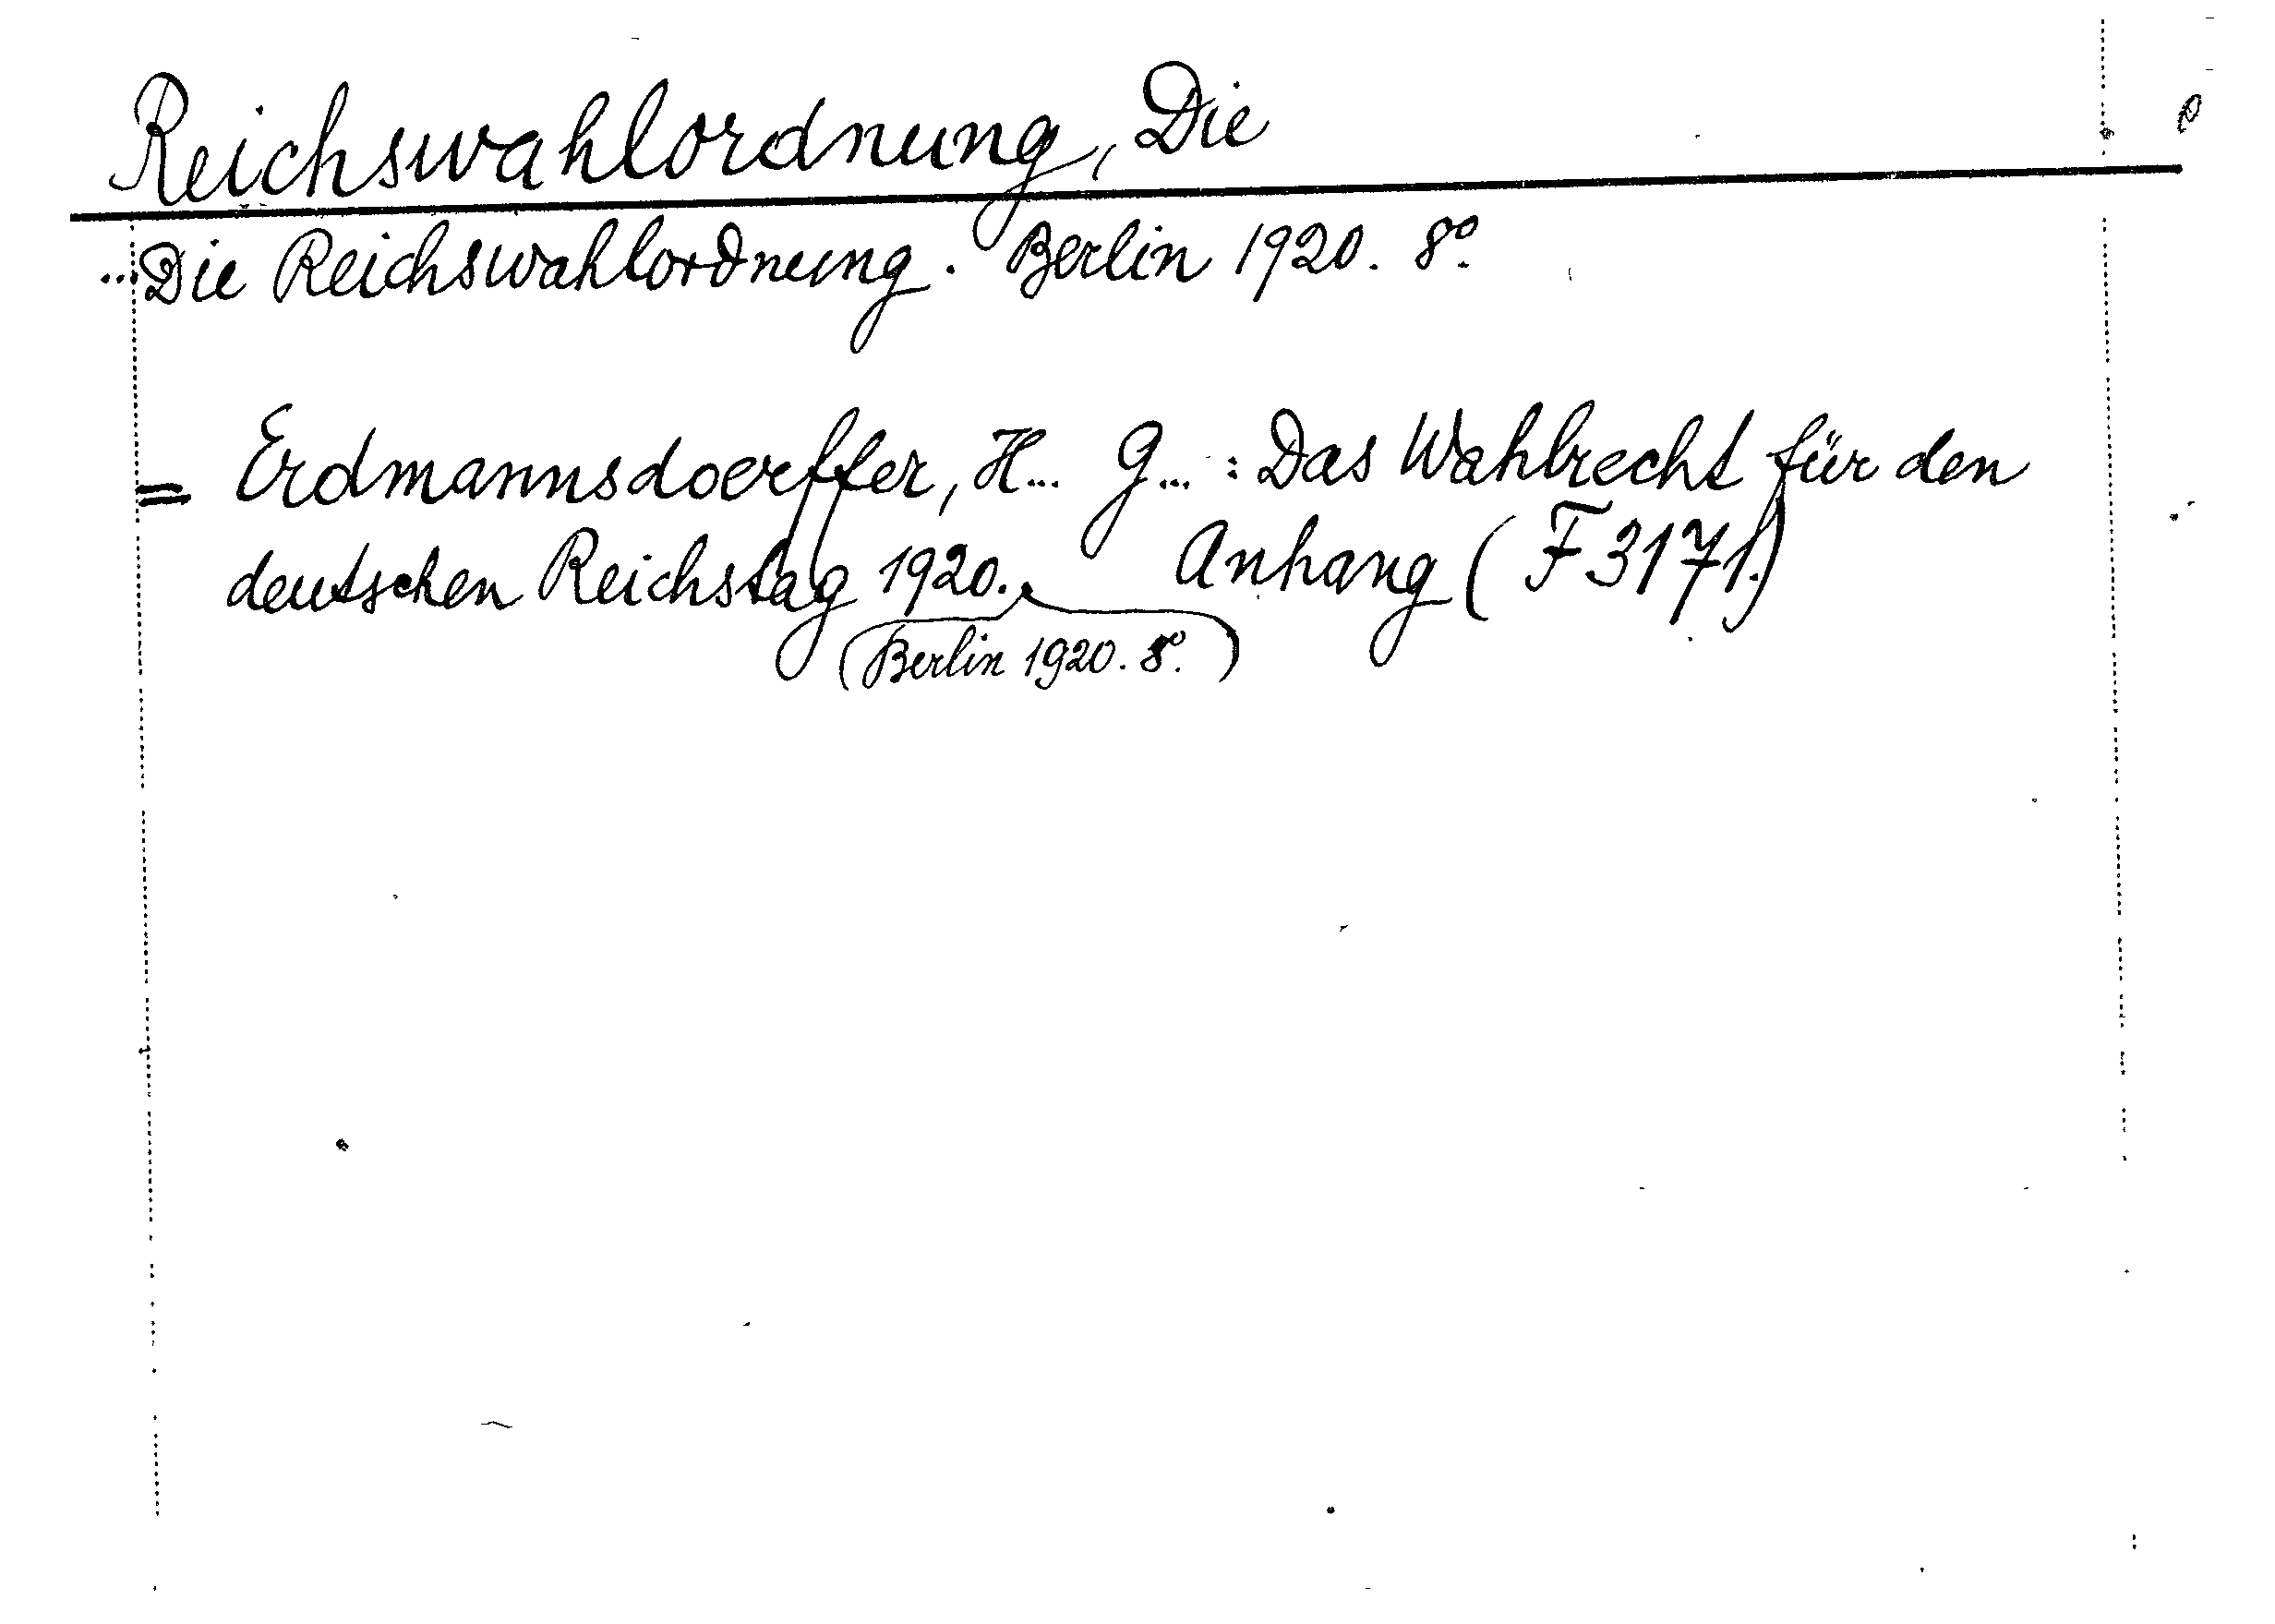 Reichswahlordnung, Die
... Die Reichswahlordnung. Berlin 1920. 8º.
= Erdmannsdoerffer, H... G... : Das Wahlrecht für den
deutschen Reichstag 1920. Anhang (F 3171.)
(Berlin 1920. 8º.)